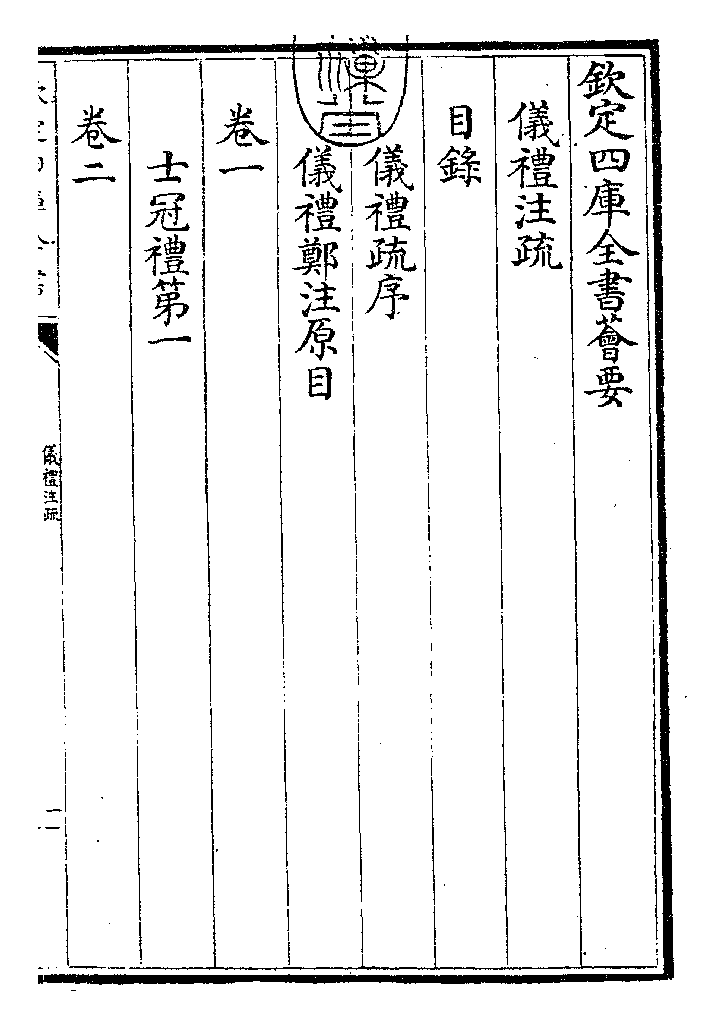 欽定四庫全書薈要
儀禮注疏
目錄
儀禮疏序
儀禮鄭注原目
卷一
士冠禮第一
卷二
儀禮注疏
一